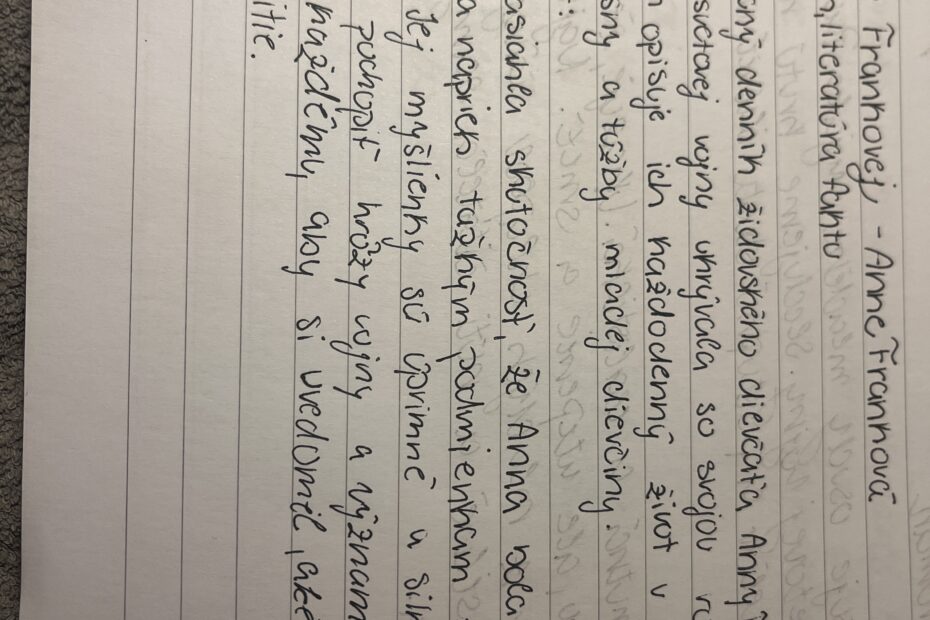 Frankovej, - Anne Franková
literatúra faktu
denník židovského dievčaťa Anny
vojny ukrývala so svojou
opisuje ich každodenný život v
a túžby mladej dievčiny.
skutočnosť, že Anna bola
napriek ťažkým podmienkam
Jej myšlienky sú úprimné a
pochopiť hrôzy vojny a význam
každému, aby si uvedomil, aké